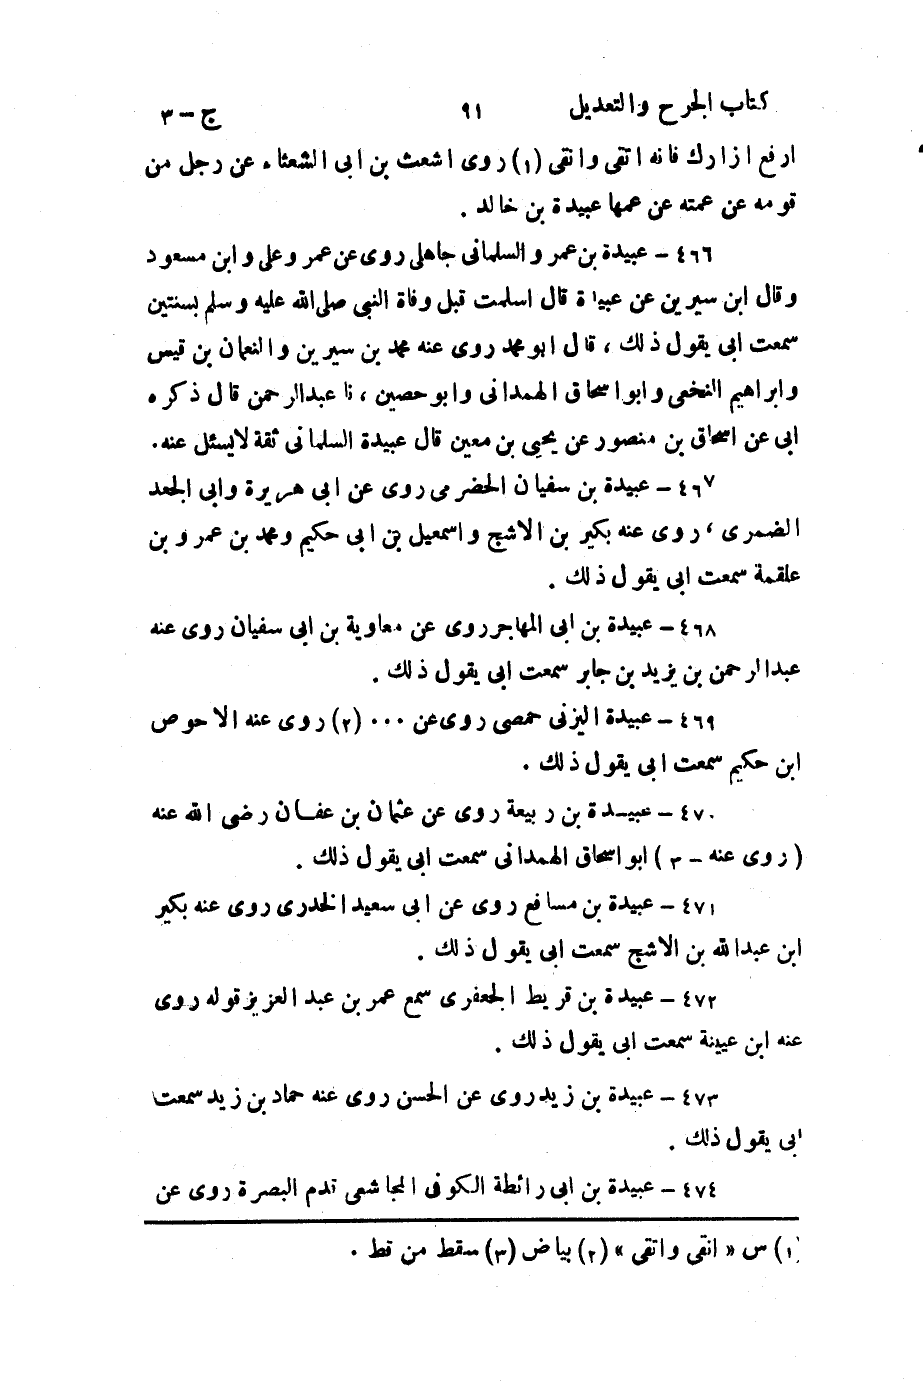 كتاب الجرح والتعديل ٩١ ج - ٣
ارفع ازارك فانه اتقى واتقى (١) روى اشعث بن ابى الشعثاء عن رجل من
قومه عن عمته عن عمها عبيدة بن خالد .
٤٦٦ - عبيدة بن عمرو السلمانى جاهلى روى عن عمر وعلى وابن مسعود
وقال ابن سيرين عن عبيدة قال اسلمت قبل وفاة النبى صلى الله عليه وسلم بسنتين
سمعت ابى يقول ذلك ، قال ابو محمد روى عنه محمد بن سيرين والنعمان بن قيس
وابراهيم النخعى وابو اسحاق الهمدانى وابو حصين ، نا عبد الرحمن قال ذكره
ابى عن اسحاق بن منصور عن يحيى بن معين قال عبيدة السلمانى ثقة لايسئل عنه .
٤٦٧ - عبيدة بن سفيان الحضرمى روى عن ابى هريرة وابى الجعد
الضمرى ، روى عنه بكير بن الاشج واسمعيل بن ابى حكيم ومحمد بن عمرو بن
علقمة سمعت ابى يقول ذلك .
٤٦٨ - عبيدة بن ابى المهاجر روى عن معاوية بن ابى سفيان روى عنه
عبد الرحمن بن يزيد بن جابر سمعت ابى يقول ذلك .
٤٦٩ - عبيدة اليزنى حمصى روى عن ٠٠٠ (٢) روى عنه الاحوص
ابن حكيم سمعت ابى يقول ذلك .
٤٧٠ - عبيدة بن ربيعة روى عن عثمان بن عفان رضى الله عنه
( روى عنه - ٣ ) ابو اسحاق الهمدانى سمعت ابى يقول ذلك .
٤٧١ - عبيدة بن مسافع روى عن ابى سعيد الخدرى روى عنه بكير
ابن عبد الله بن الاشج سمعت ابى يقول ذلك .
٤٧٢ - عبيدة بن قريط الجعفرى سمع عمر بن عبد العزيز قوله روى
عنه ابن عيينة سمعت ابى يقول ذلك .
٤٧٣ - عبيدة بن زيد روى عن الحسن روى عنه حماد بن زيد سمعت
ابى يقول ذلك .
٤٧٤ - عبيدة بن ابى رائطة الكوفى المجاشعى قدم البصرة روى عن
(١) س « انقى واتقى » (٢) بياض (٣) سقط من قط .